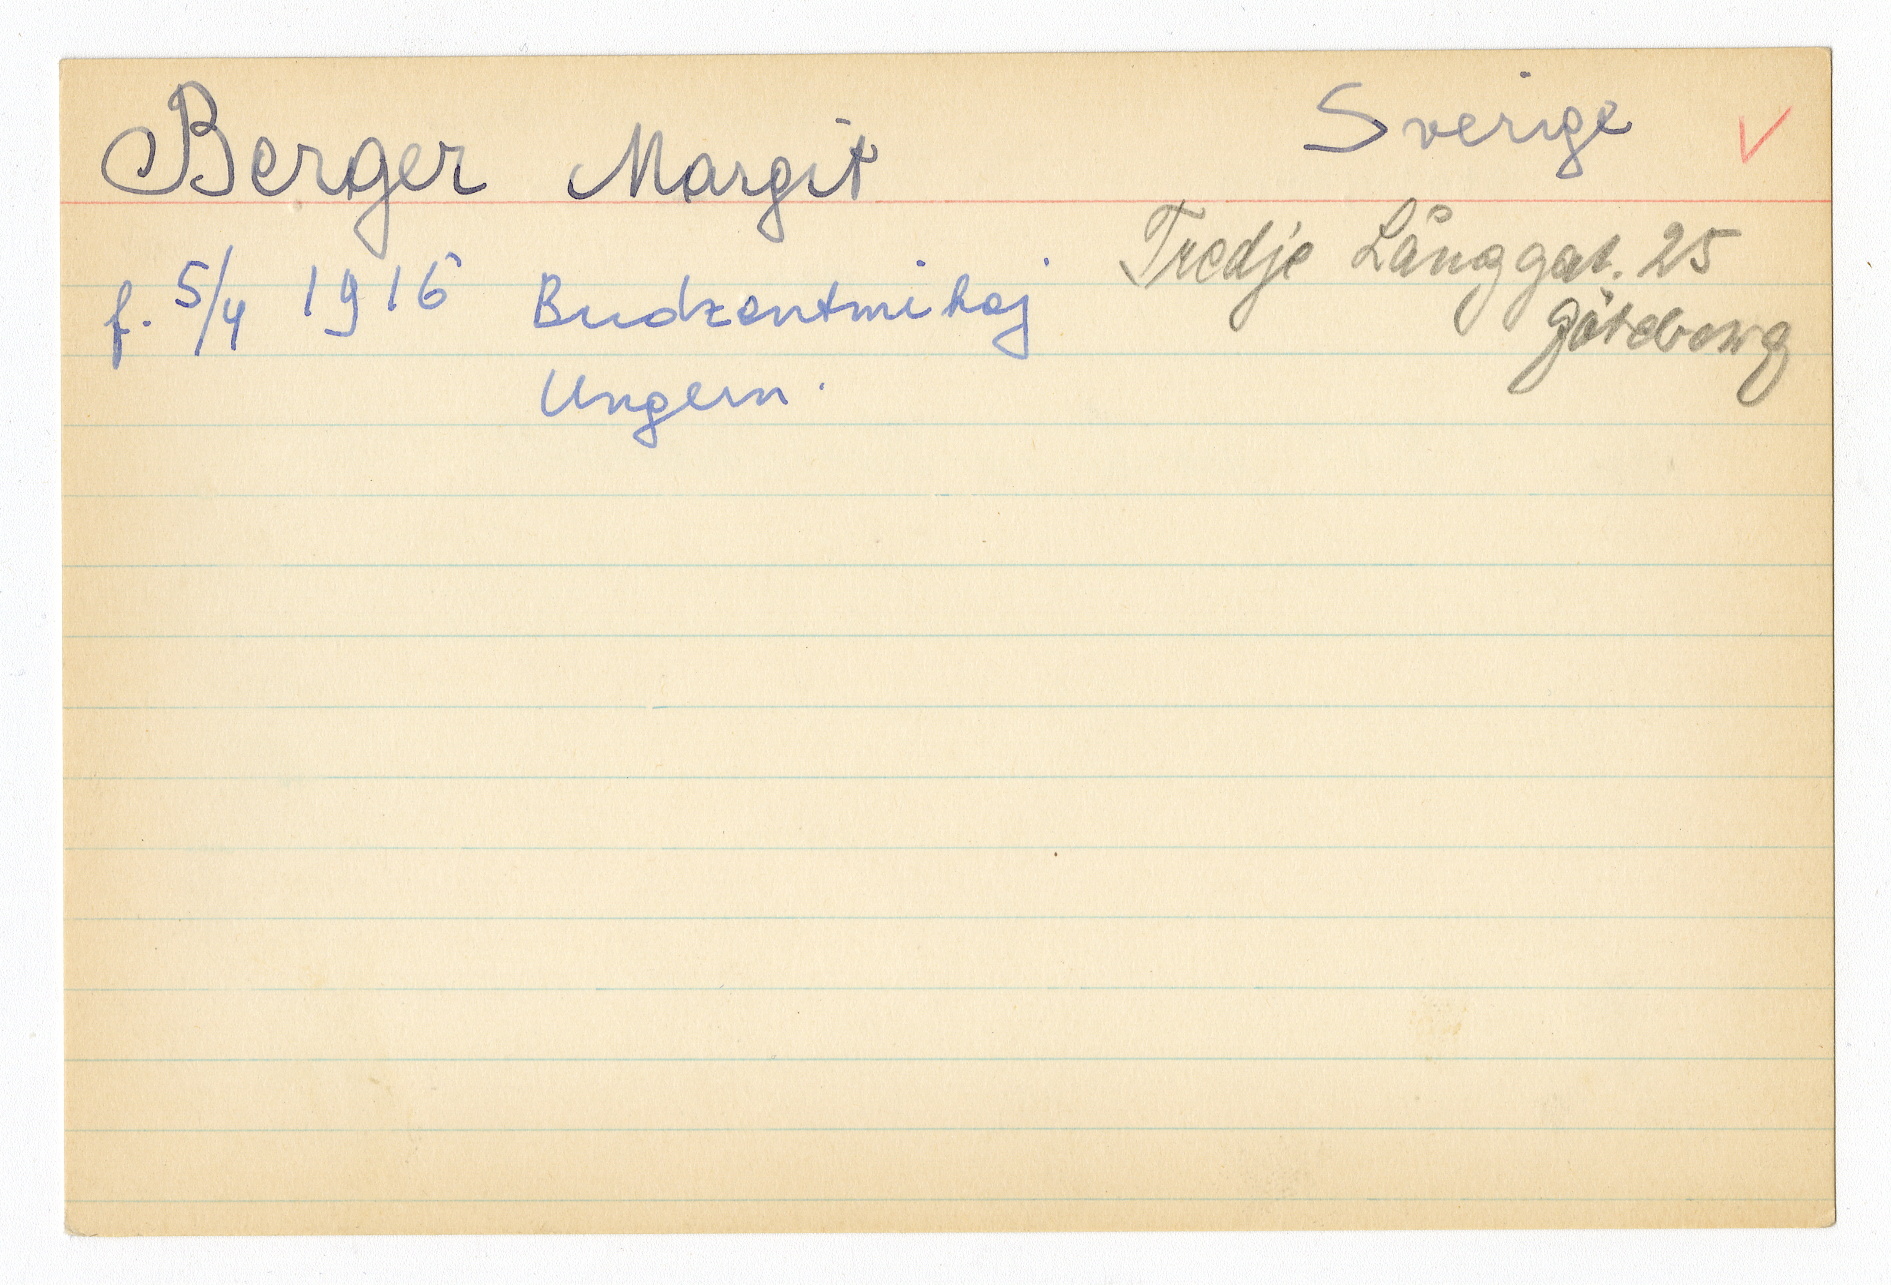 Berger Margit
Sverige
f. 5/4 1916 Budzentmihaj
Ungern.
Tredje Långgat. 25
Göteborg